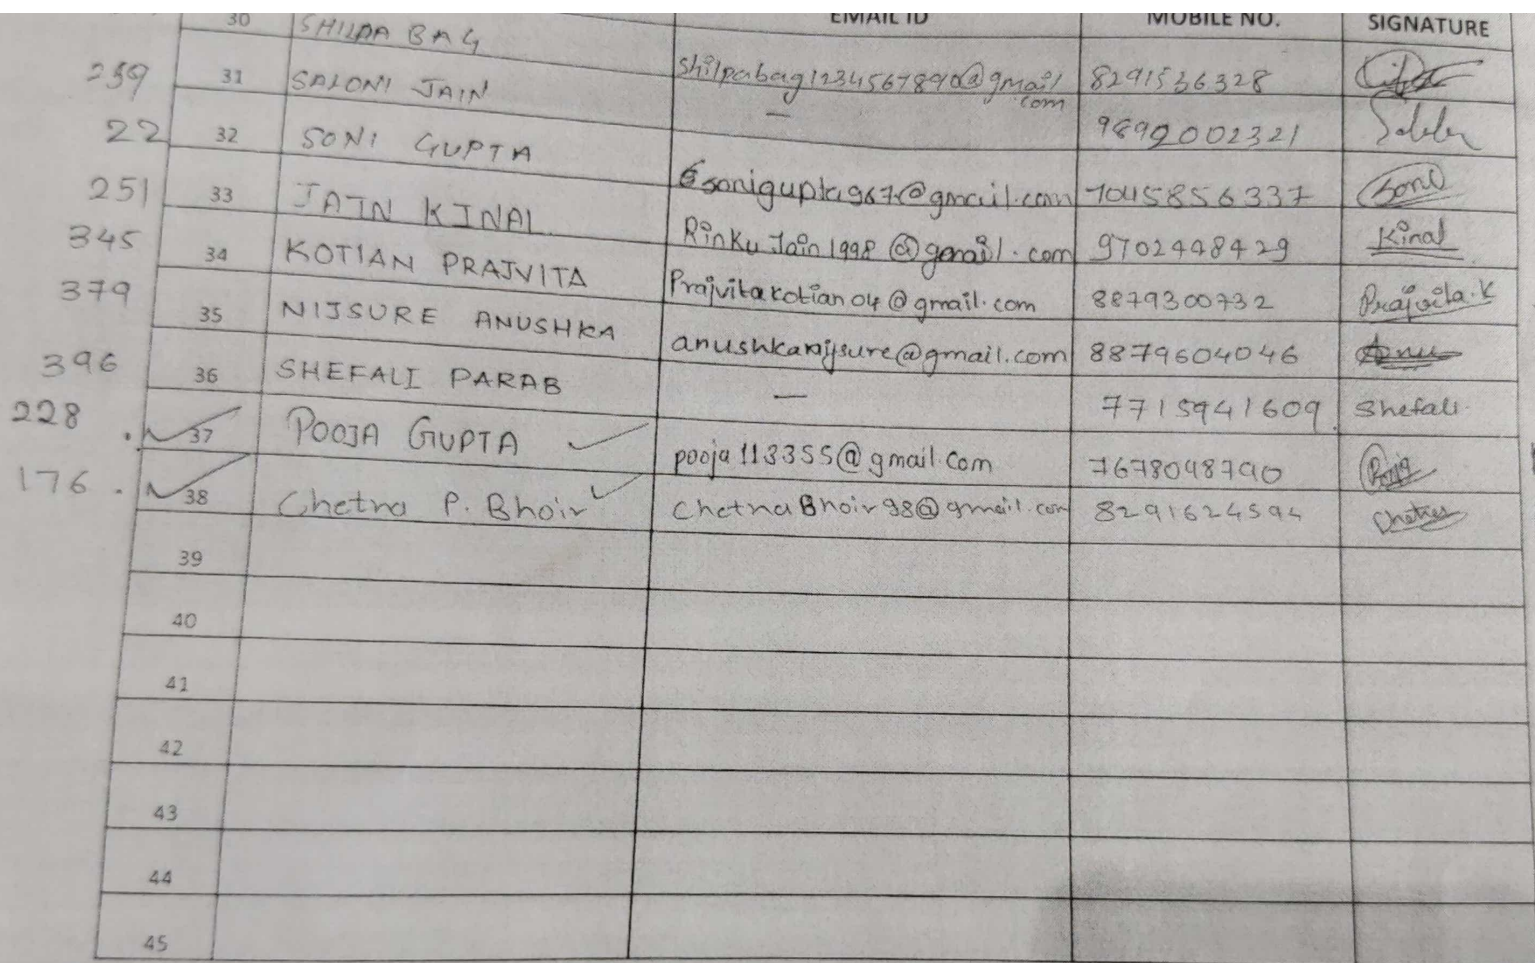 EMAIL ID MOBILE NO. SIGNATURE
30 SHILPA BAG shilpabag1234567890@gmail.com 8291536328
259 31 SALONI JAIN — 9892002321
22 32 SONI GUPTA sonigupta967@gmail.com 7045856337 Soni
251 33 JAIN KINAL RinkuJain1998@gmail.com 9702448429 Kinal
345 34 KOTIAN PRAJVITA Prajvitakotian04@gmail.com 8879300732 Prajvita.K
379 35 NIJSURE ANUSHKA anushkanijsure@gmail.com 8879604046 Anu
396 36 SHEFALI PARAB — 7715941609 Shefali
228 37 POOJA GUPTA pooja113355@gmail.com 7678098790 Pooja
176 38 Chetna P. Bhoir ChetnaBhoir98@gmail.com 8291624594 Chetna
39
40
41
42
43
44
45